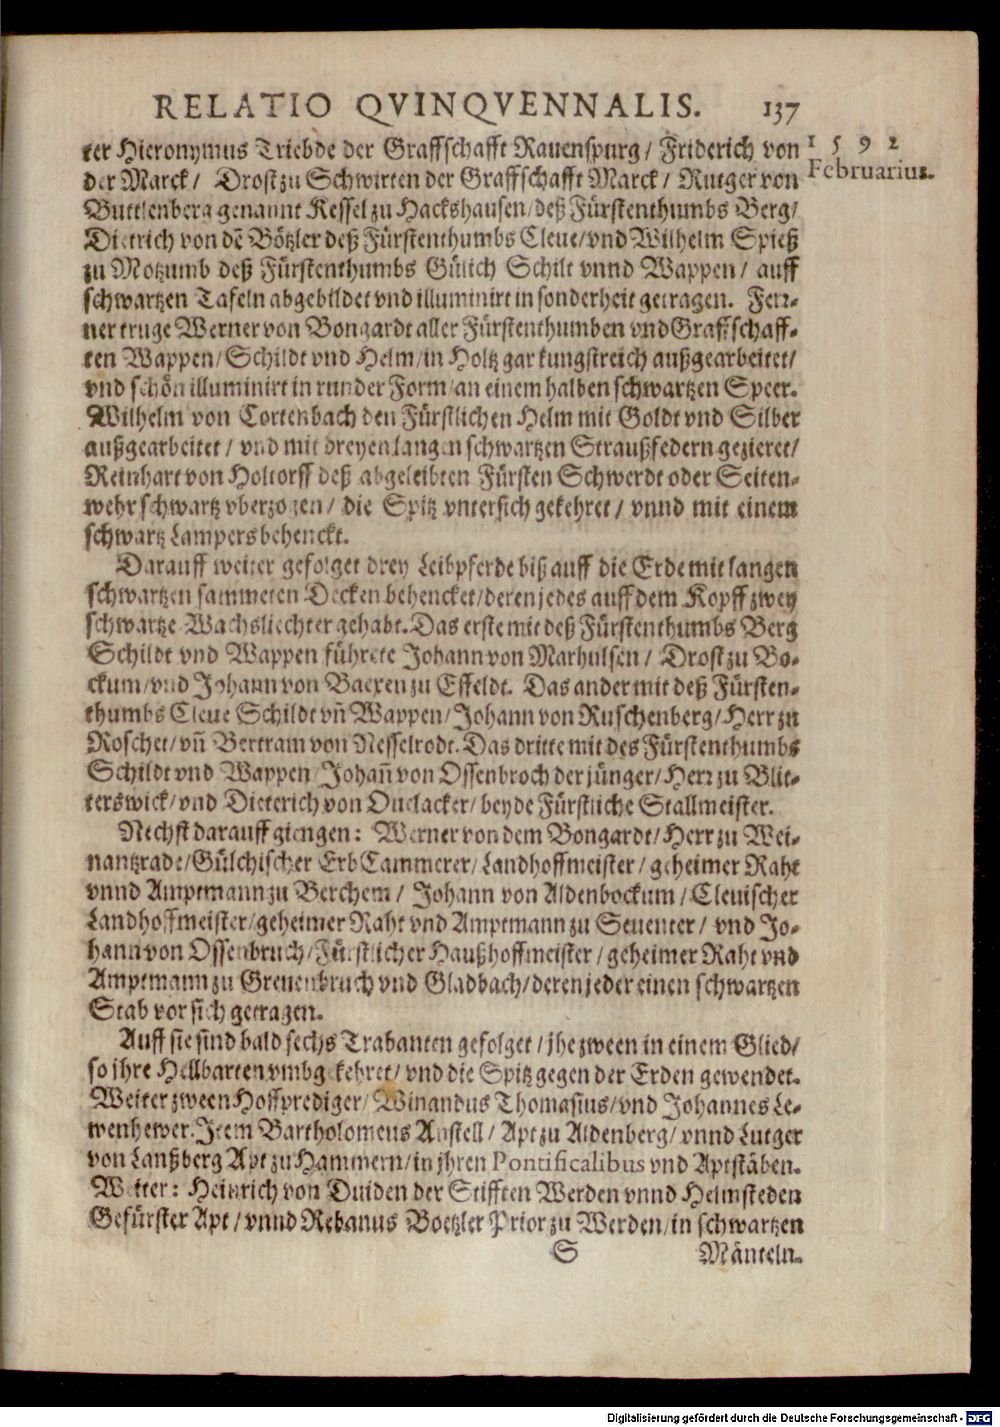 RELATIO QVINQVENNALIS. 137
1592
Februarius.
ter Hieronymus Triebde der Graffschafft Rauenspurg/ Friderich von
der Marck/ Drost zu Schwirten der Graffschafft Marck/ Rutger von
Buttlenberg genannt Kessel zu Hackshausen/deß Fürstenthumbs Berg/
Dietrich von dē Bötzler deß Fürstenthumbs Cleue/vnd Wilhelm Spieß
zu Motzumb deß Fürstenthumbs Gülich Schilt vnnd Wappen/ auff
schwartzen Tafeln abgebildet vnd illuminirt in sonderheit getragen. Fer-
ner truge Werner von Bongardt aller Fürstenthumben vnd Graffschaff-
ten Wappen/Schildt vnd Helm/in Holtz gar kungstreich außgearbeitet/
vnd schön illuminirt in runder Form/an einem halben schwartzen Speer.
Wilhelm von Cortenbach den Fürstlichen Helm mit Goldt vnd Silber
außgearbeitet/ vnd mit dreyen langen schwartzen Straußfedern gezieret/
Reinhart von Holtorff deß abgeleibten Fürsten Schwerdt oder Seiten-
wehr schwartz vberzogen/ die Spitz vntersich gekehret/ vnnd mit einem
schwartz Lampers behenckt.
Darauff weiter gefolget drey Leibpferde biß auff die Erde mit langen
schwartzen sammeten Decken behencket/deren jedes auff dem Kopff zwey
schwartze Wachsliechter gehabt. Das erste mit deß Fürstenthumbs Berg
Schildt vnd Wappen führete Johann von Marhulsen/ Drost zu Bo-
ckum/vnd Johann von Baexen zu Effeldt. Das ander mit deß Fürsten-
thumbs Cleue Schildt vn̄ Wappen/Johann von Ruschenberg/Herr zu
Roschet/vn̄ Bertram von Nesselrodt. Das dritte mit des Fürstenthumbs
Schildt vnd Wappen Johan̄ von Ossenbroch der jünger/Herr zu Blit-
terswick/vnd Dieterich von Ouelacker/beyde Fürstliche Stallmeister.
Nechst darauff giengen: Werner von dem Bongardt/Herr zu Wei-
nantzrade/Gülchischer ErbCammerer/Landhoffmeister/geheimer Raht
vnnd Amptmann zu Berchem/ Johann von Aldenbockum/Cleuischer
Landhoffmeister/geheimer Raht vnd Amptmann zu Seuenter/ vnd Jo-
hann von Ossenbruch/Fürstlicher Haußhoffmeister/geheimer Raht vnd
Amptmann zu Greuenbruch vnd Gladbach/deren jeder einen schwartzen
Stab vor sich getragen.
Auff sie sind bald sechs Trabanten gefolget/jhe zween in einem Glied/
so ihre Hellbarten vmbgekehret/vnd die Spitz gegen der Erden gewendet.
Weiter zween Hoffprediger/Winandus Thomasius/vnd Johannes Le-
wenhewer. Item Bartholomeus Anstell/ Apt zu Aldenberg/ vnnd Lutger
von Lanßberg Apt zu Hammern/in jhren Pontificalibus vnd Aptstäben.
Weiter: Heinrich von Duiden der Stifften Werden vnnd Helmsteden
Gefürster Apt/ vnnd Rebanus Boetzler Prior zu Werden/in schwartzen
S Mänteln.
Digitalisierung gefördert durch die Deutsche Forschungsgemeinschaft - DFG